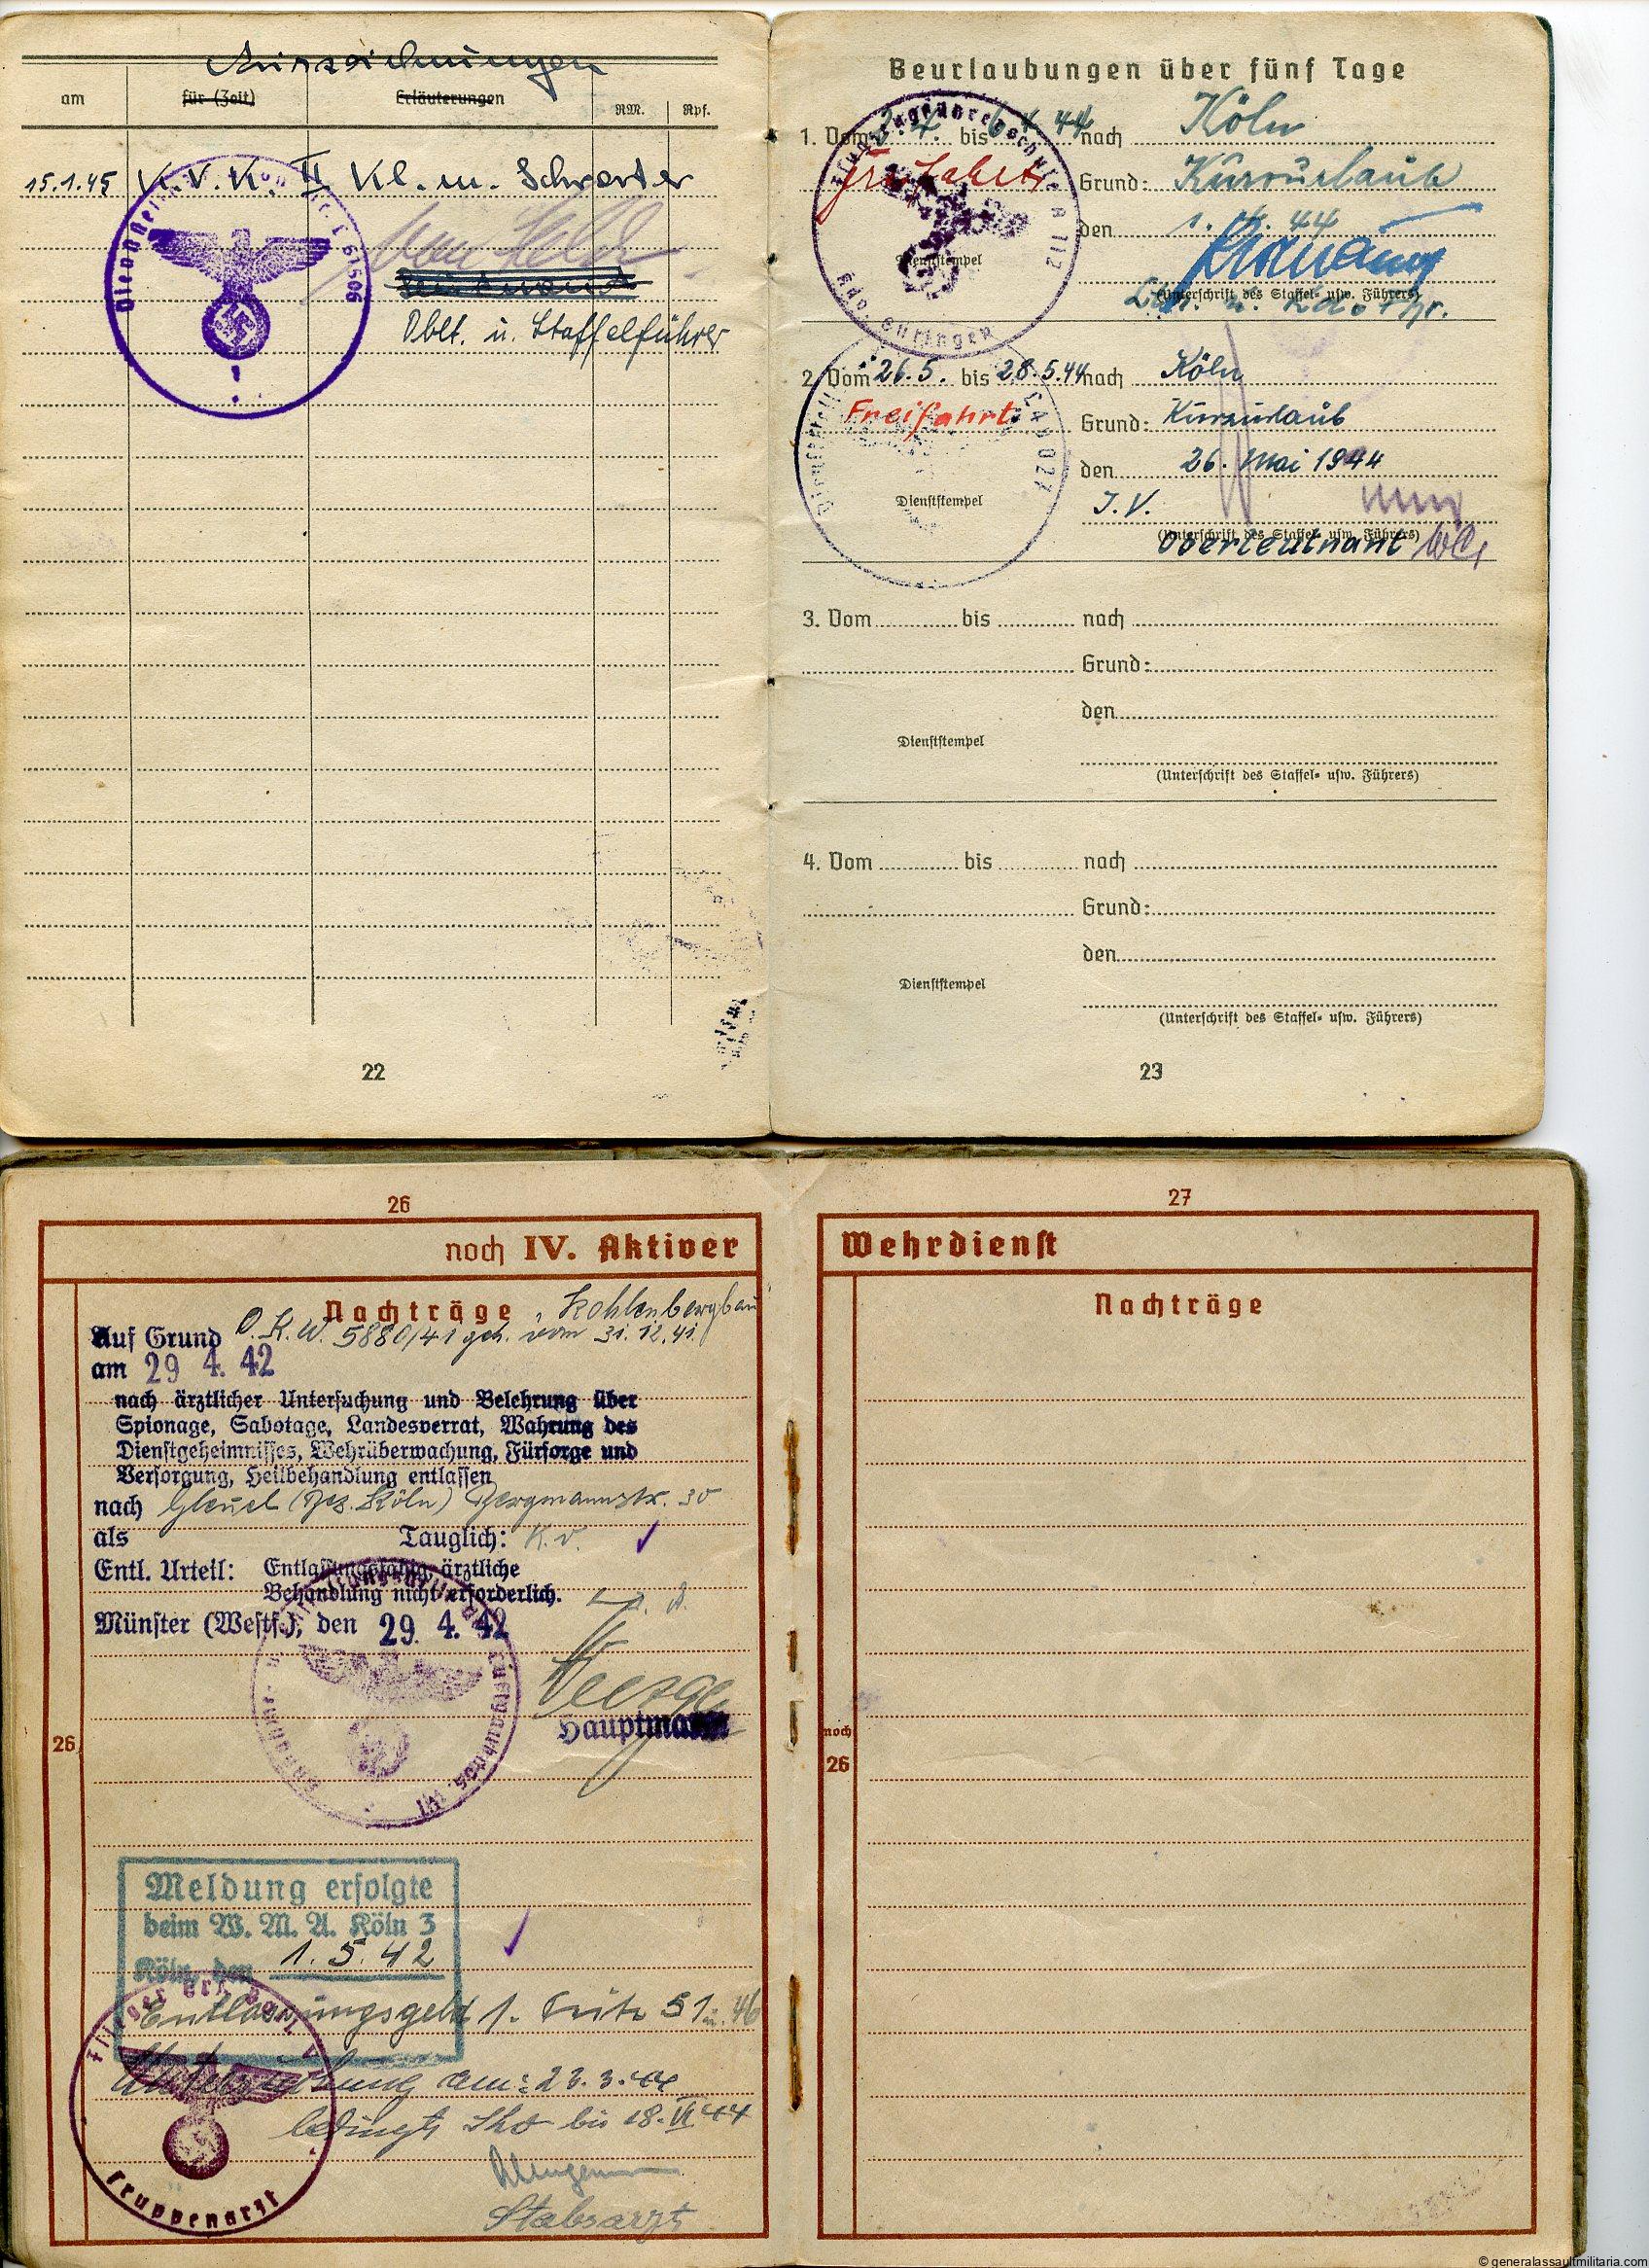 Auszeichnungen
am für (Zeit) Erläuterungen RM. Rpf.
15.1.45 K.V.K. II. Kl. m. Schwerter
L 61506
Oblt. u. Staffelführer
22
Beurlaubungen über fünf Tage
1. Vom 3.4. bis 6.4.44 nach Köln
Freifahrt Grund: Kurzurlaub
den 1. 4. 44
Dienststempel
(Unterschrift des Staffel- usw. Führers)
2. Vom 26.5. bis 28.5.44 nach Köln
Freifahrt Grund: Kurzurlaub
den 26. Mai 1944
Dienststempel
I.V.
(Unterschrift des Staffel- usw. Führers)
Oberleutnant
3. Vom bis nach
Grund:
den
Dienststempel
(Unterschrift des Staffel- usw. Führers)
4. Vom bis nach
Grund:
den
Dienststempel
(Unterschrift des Staffel- usw. Führers)
23
26
noch IV. Aktiver
Nachträge "Kohlenbergbau"
Auf Grund O.K.W. 5880/41 geh. vom 31.12.41
am 29 4. 42
nach ärztlicher Untersuchung und Belehrung über
Spionage, Sabotage, Landesverrat, Wahrung des
Dienstgeheimnisses, Wehrüberwachung, Fürsorge und
Versorgung, Heilbehandlung entlassen
nach Gleuel (Bez. Köln) Bergmannstr. 30
als Tauglich: K.v.
Entl. Urteil: Entlassungsfähig, ärztliche
Behandlung nicht erforderlich.
Münster (Westf.), den 29. 4. 42
Hauptmann
26
Meldung erfolgte
beim W. M. A. Köln 3
Köln, den 1. 5. 42
Entlassungsgeld 1. Seite 51 u. 46
Untersuchung am: 23.3.44
bedingt bis 18. VI 44
Stabsarzt
Truppenarzt
27
Wehrdienst
Nachträge
noch
26
© generalassaultmilitaria.com